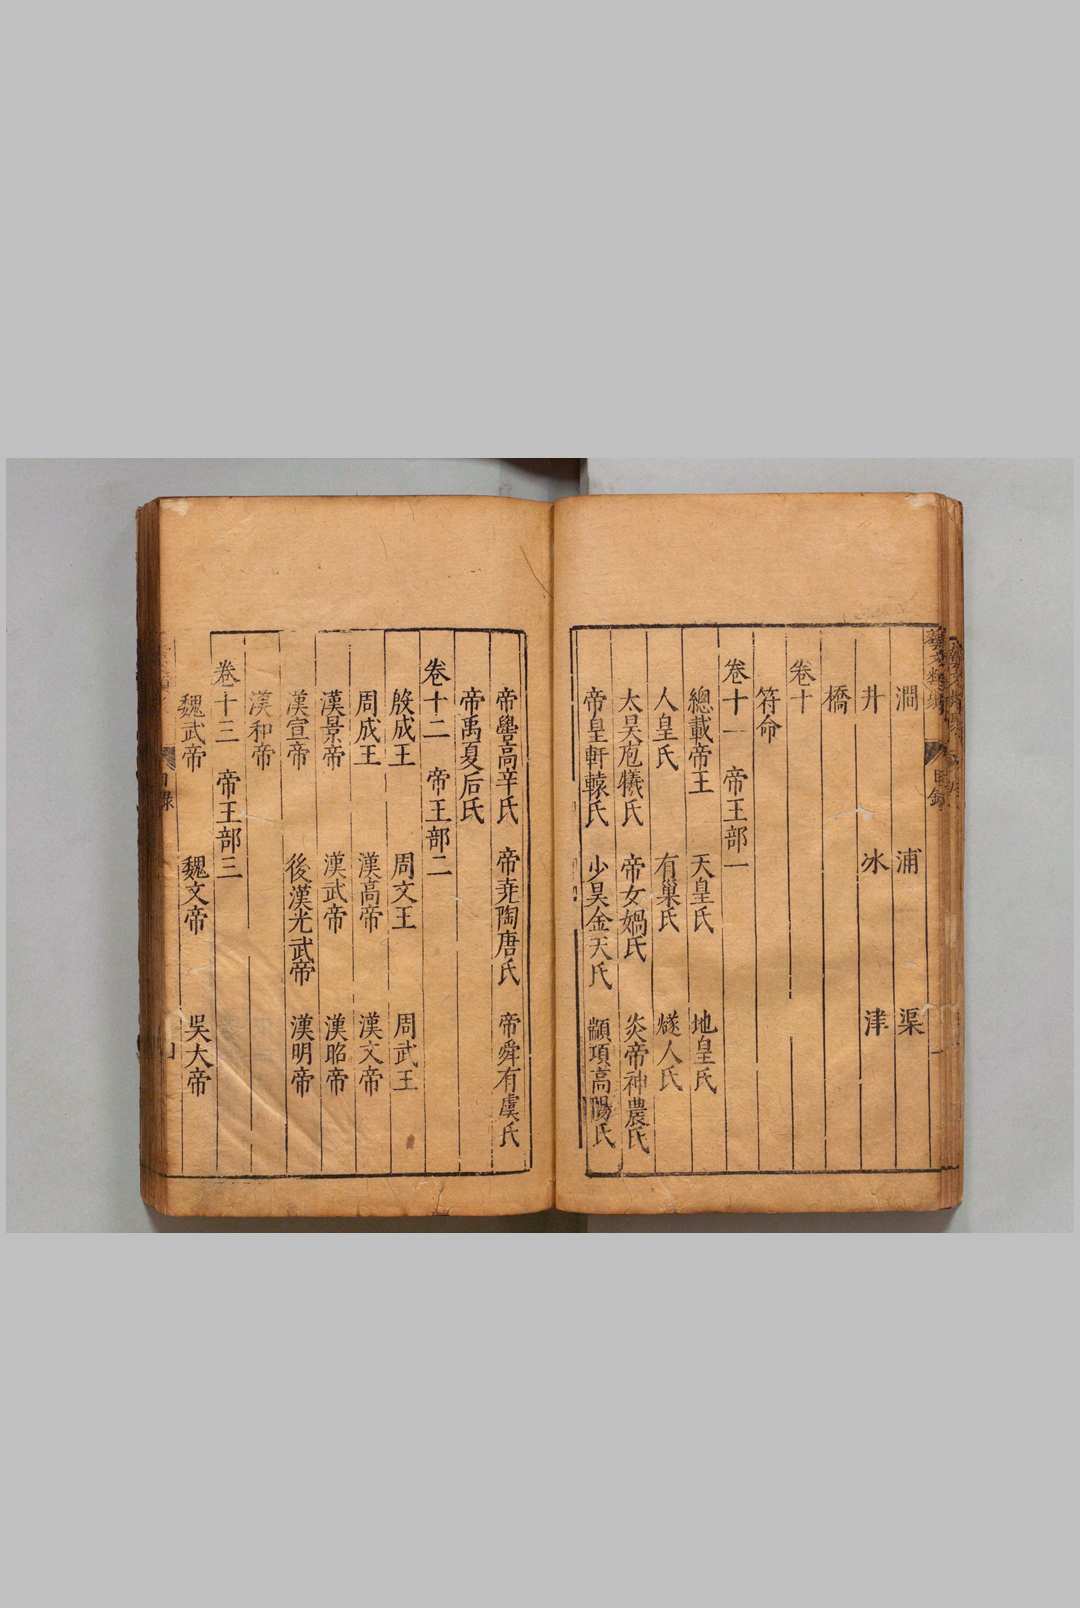 藝文類聚 目錄
澗 浦 渠
井 冰 津
橋
卷十
符命
卷十一 帝王部一
總載帝王 天皇氏 地皇氏
人皇氏 有巢氏 燧人氏
太昊庖犧氏 帝女媧氏 炎帝神農氏
帝皇軒轅氏 少昊金天氏 顓頊高陽氏
帝嚳高辛氏 帝堯陶唐氏 帝舜有虞氏
帝禹夏后氏
卷十二 帝王部二
殷成王 周文王 周武王
周成王 漢高帝 漢文帝
漢景帝 漢武帝 漢昭帝
漢宣帝 後漢光武帝 漢明帝
漢和帝
卷十三 帝王部三
魏武帝 魏文帝 吳大帝
目錄